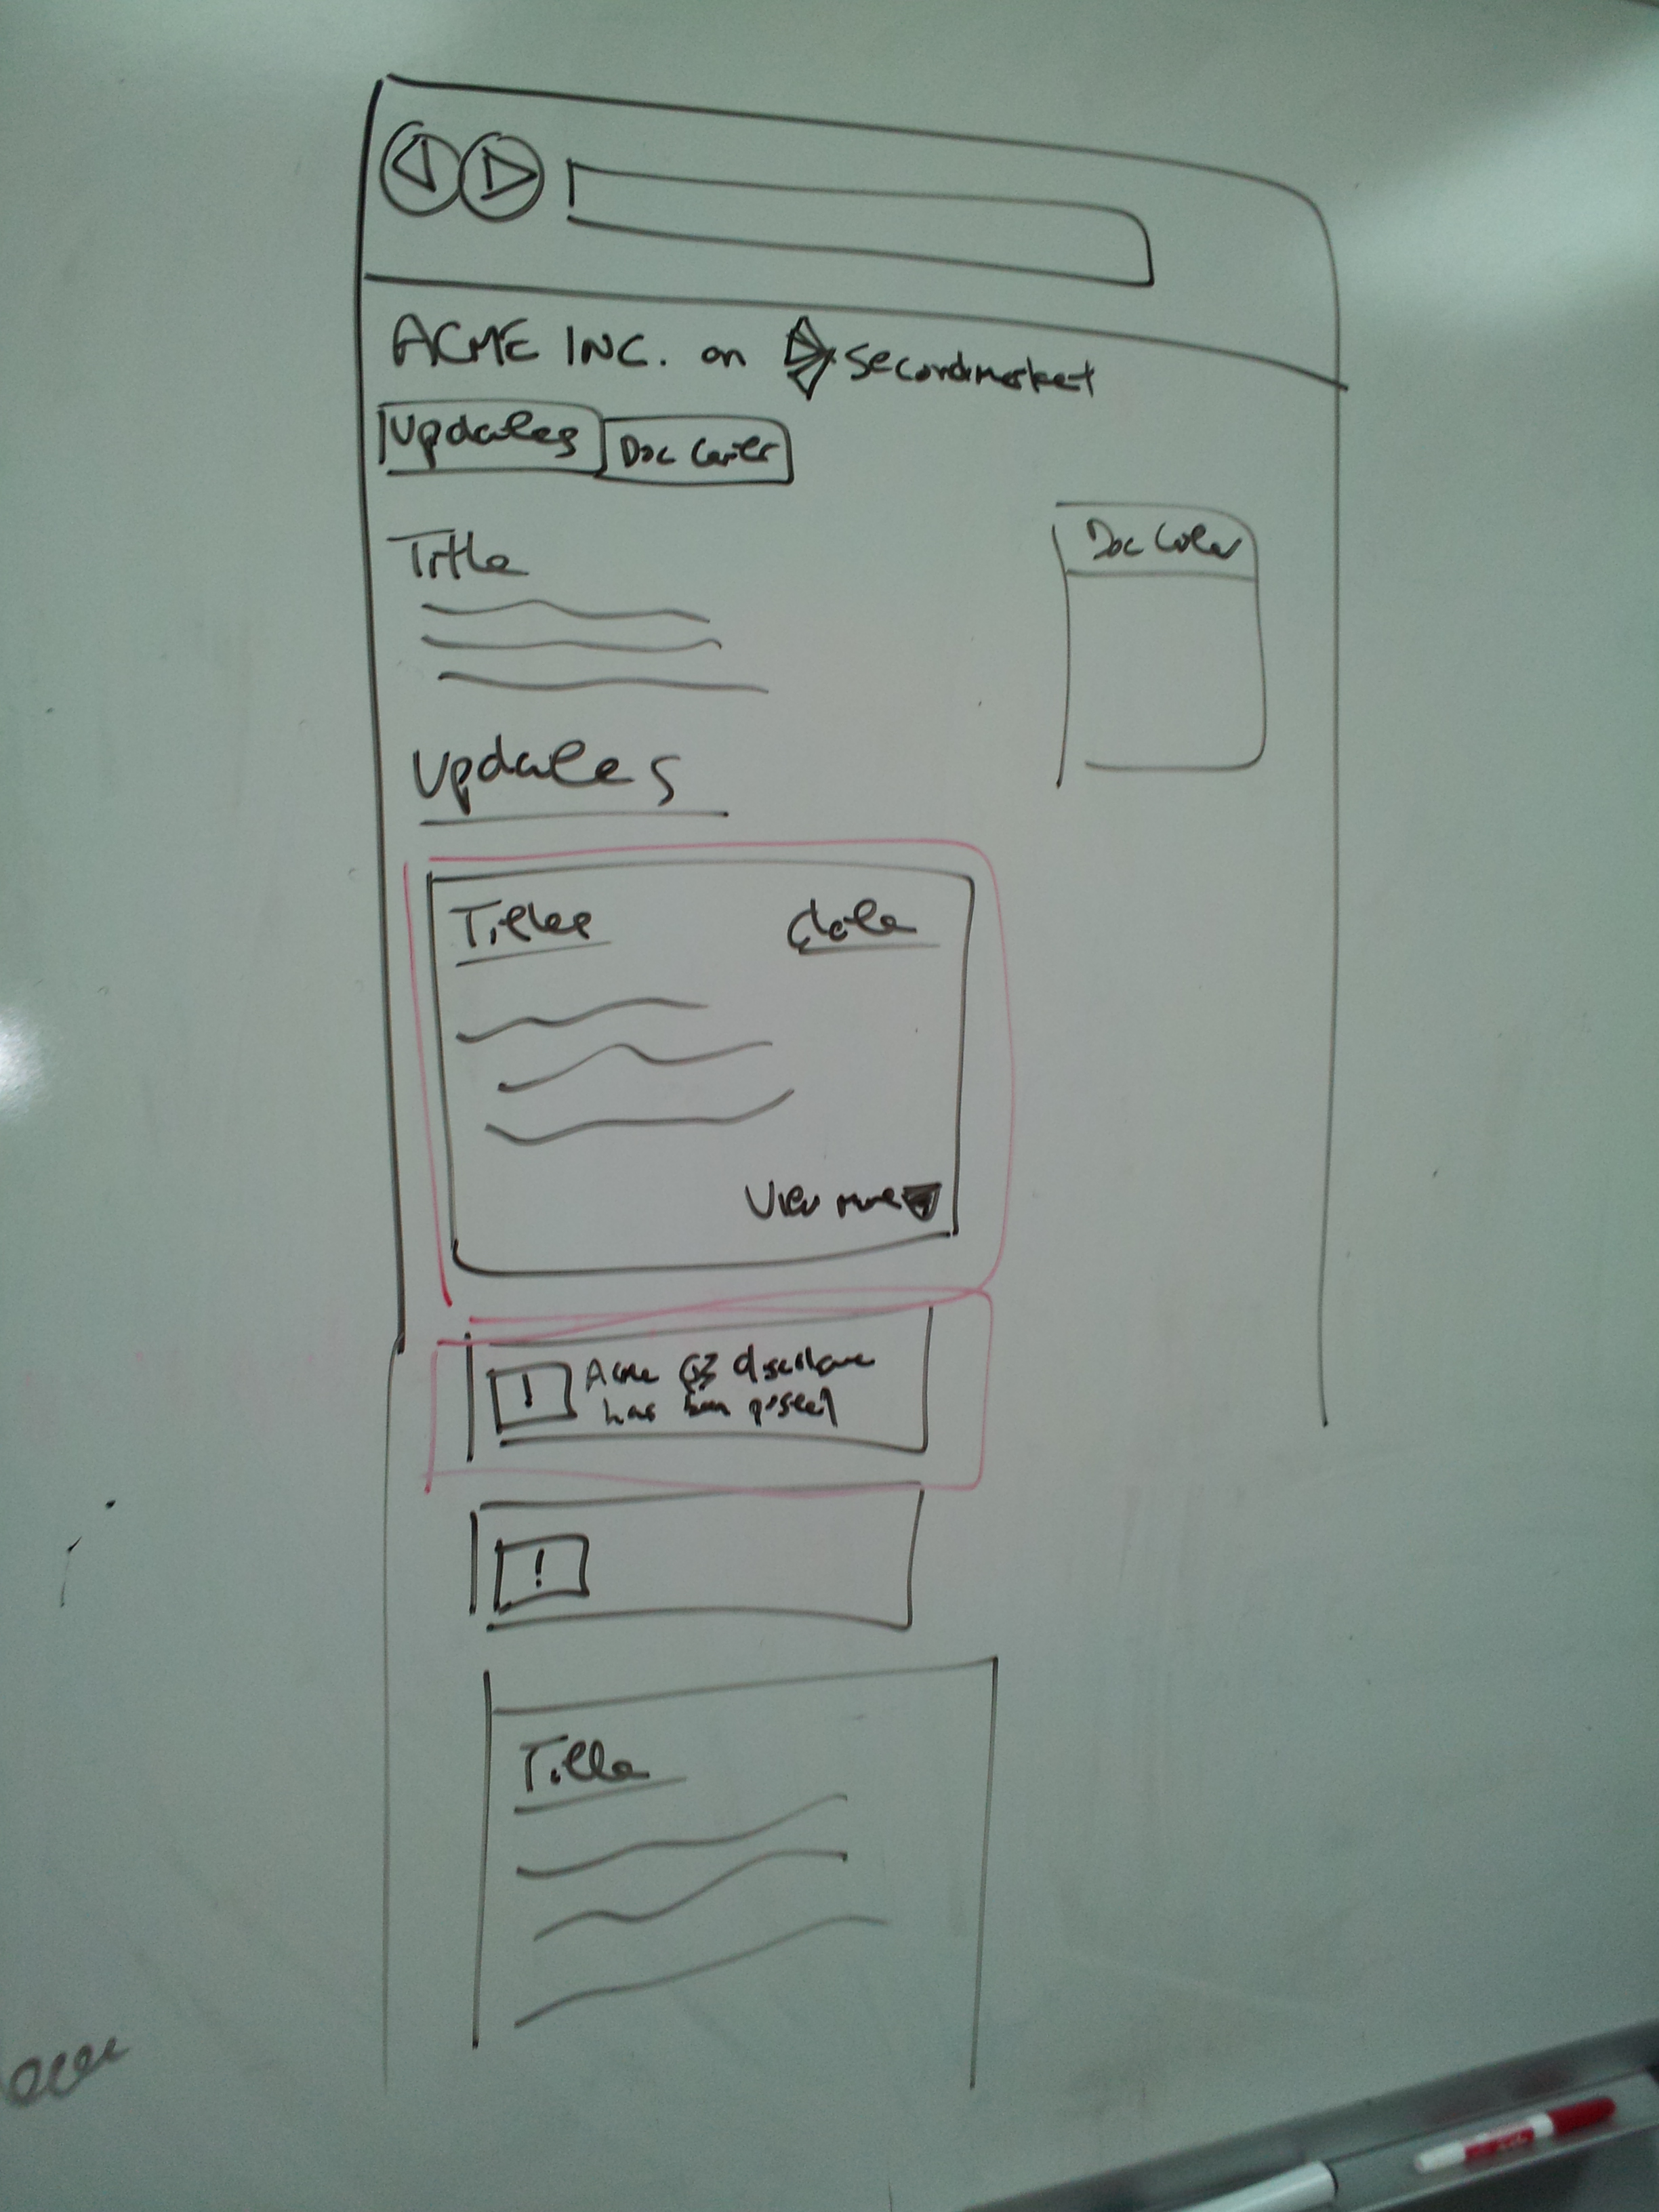 ACME INC. on Secondmarket
Updates
Doc Center
Title
Doc Center
Updates
Titles
date
View more
! Acme Q3 disclosure
has been posted
!
Title